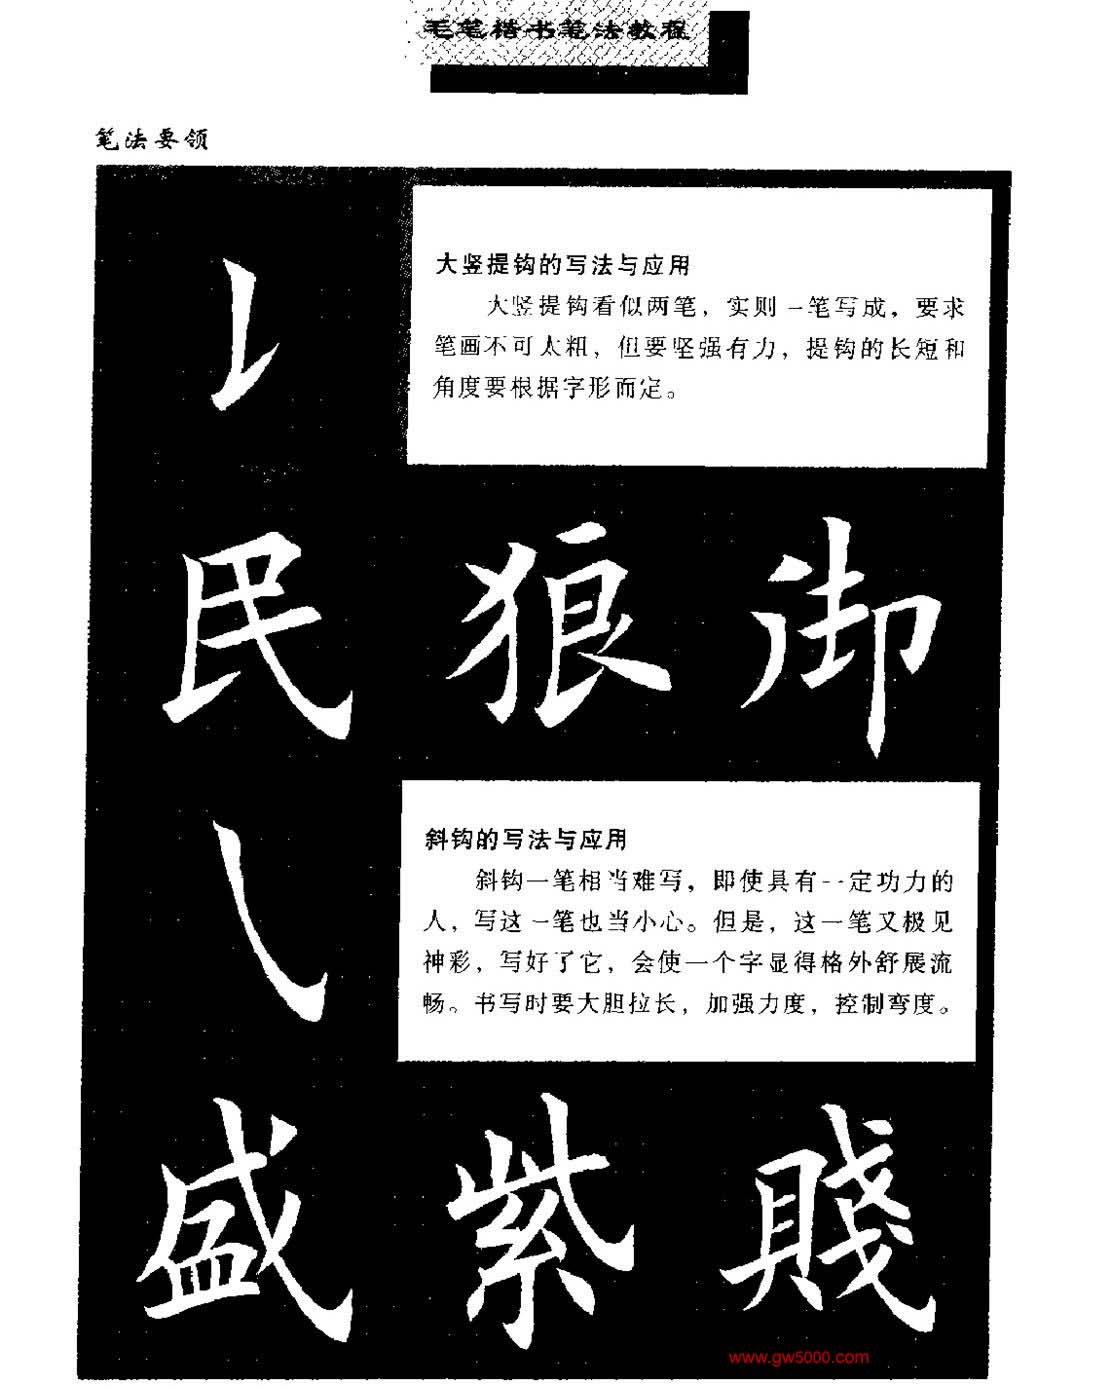 毛笔楷书笔法教程
笔法要领
大竖提钩的写法与应用
大竖提钩看似两笔，实则一笔写成，要求
笔画不可太粗，但要坚强有力，提钩的长短和
角度要根据字形而定。
民 狼 御
斜钩的写法与应用
斜钩一笔相当难写，即使具有一定功力的
人，写这一笔也当小心。但是，这一笔又极见
神彩，写好了它，会使一个字显得格外舒展流
畅。书写时要大胆拉长，加强力度，控制弯度。
盛 紫 賤
www.gw5000.com